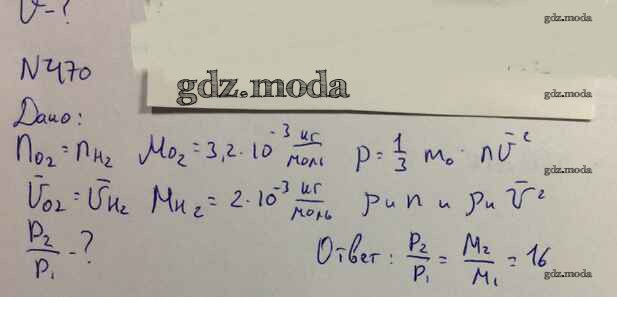 υ - ?
gdz.moda
N470
gdz.moda
gdz.moda
Дано:
n_{O2} = n_{H2}  M_{O2} = 3,2 · 10^{-3} кг/моль  p = 1/3 m₀ · n ῡ²
gdz.moda
ῡ_{O2} = ῡ_{H2}  M_{H2} = 2 · 10^{-3} кг/моль  p и n и p и ῡ²
gdz.moda
P₂/P₁ - ?  Ответ: P₂/P₁ = M₂/M₁ = 16
gdz.moda